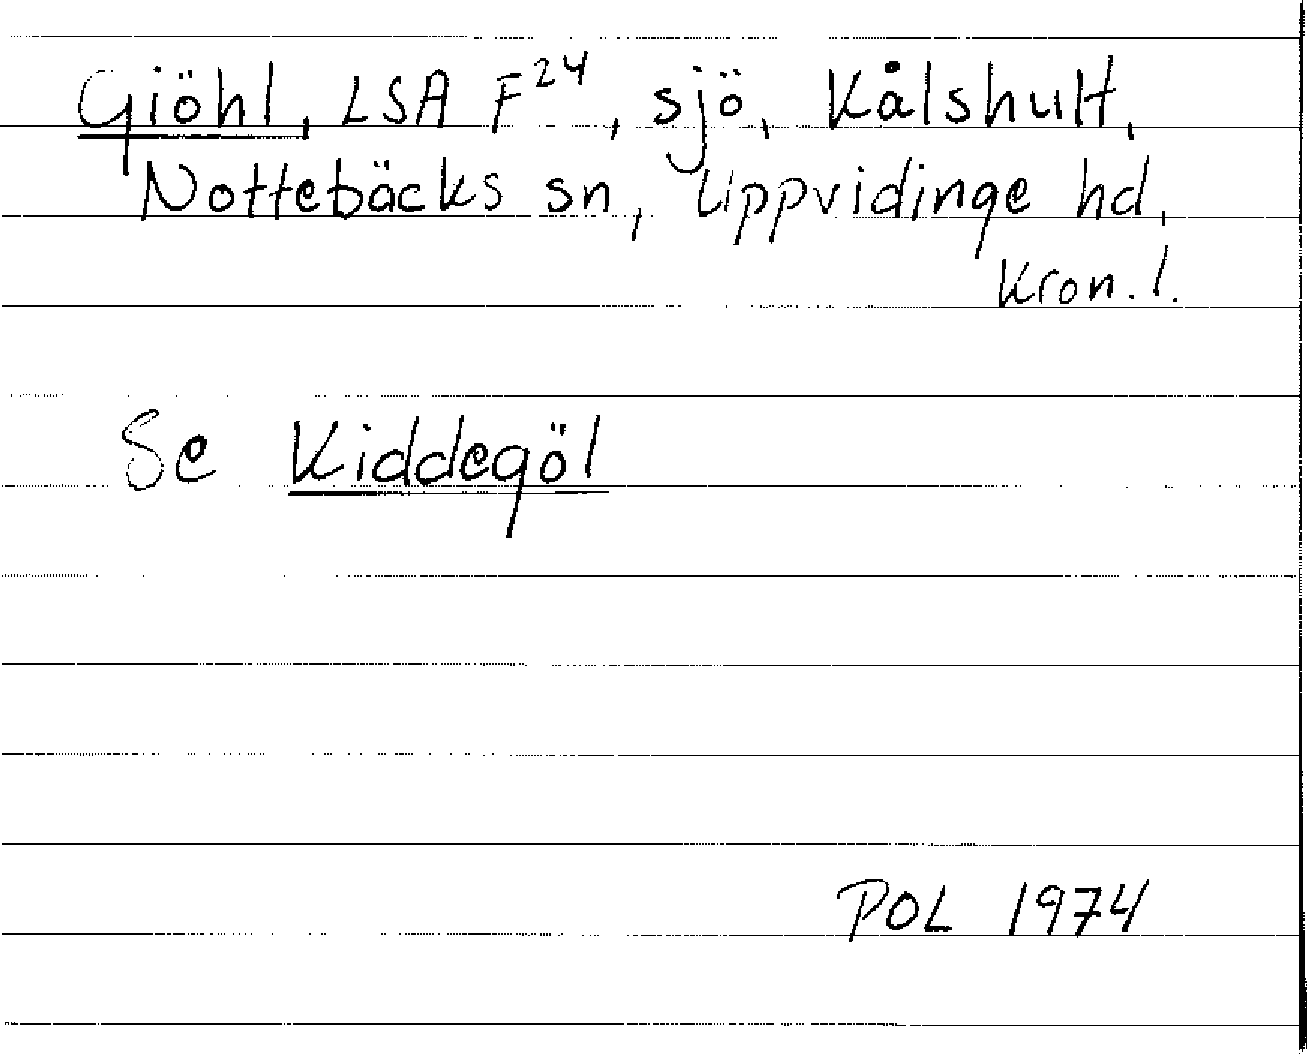 Gjöhl, LSA F²⁴, sjö, Kålshult,
Nottebäcks sn, Uppvidinge hd,
Kron. l.
Se Kiddegöl
POL 1974